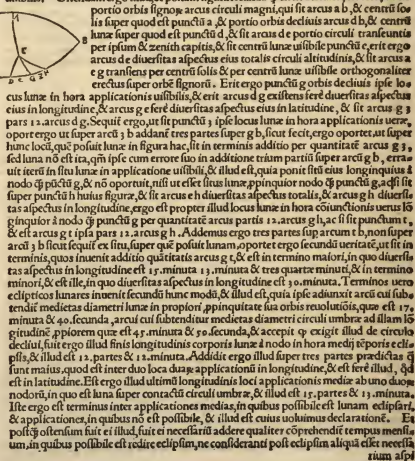 portio orbis signorum arcus circuli magni, qui sit arcus a b, & centrū so
lis super quod est punctū a, & portio orbis decliuis arcus d b, & centrū
lunæ super quod est punctū d, & sit arcus de portio circuli transeuntis
per ipsum & zenith capitis, & sit centrū lunæ uisibile punctū e, erit ergo
arcus de diuersitas aspectus eius totalis circuli altitudinis, & sit arcus a
e g transiens per centrū solis & per centrū lunæ uisibile orthogonaliter
erectus super orbē signorū. Erit ergo punctū g orbis decliuis ipse lo⸗
cus lunæ in hora applicationis uisibilis, & erit arcus d g existens ferè diuersitas aspectus
eius in longitudine, & arcus e g ferè diuersitas aspectus eius in latitudine, & sit arcus g ʒ
pars 12. arcus d g. Sequit ergo, ut sit punctū ʒ ipse locus lunæ in hora applicationis ueræ,
oportet ergo ut super arcū ʒ b addant tres partes super g b, sicut fecit, ergo oportet, ut super
hunc locū, quē posuit lunæ in figura hac, sit in terminis additio per quantitatē arcus g ʒ,
sed luna nō est ita, qm̄ ipse cum errore suo in additione trium partiū super arcū g b, erra⸗
uit iterū in situ lunæ in applicatione uisibili, & illud est, quia ponit sitū eius longinquius à
nodo q̄ pūctū g, & nō oportuit, nisi ut esset situs lunæ, ppinquior nodo q̄ punctū g, acsi sit
super punctū h huius figuræ, & sit arcus e h diuersitas aspectus totalis, & arcus g h diuersi⸗
tas aspectus in longitudine, ergo est propter illud locus lunæ in hora coniunctionis ueræ lō
ginquior à nodo q̄ punctū g per quantitatē arcus partis 12. arcus g h, ac si sit punctum t,
& est arcus g t ipsa pars 12. arcus g h. Addemus ergo tres partes sup arcum t b, non super
arcū ʒ b sicut sequit ex situ, super quē posuit lunam, oportet ergo secundū ueritatē, ut sit in
terminis, quos inuenit additio quātitatis arcus g t, & est in termino maiori, in quo diuersi⸗
tas aspectus in longitudine est 15. minuta 13. minuta & tres quartæ minuti, & in termino
minori, & est ille, in quo diuersitas aspectus in longitudine est 30. minuta. Terminos uero
eclipticos lunares inuenit secundū hunc modū, & illud est, quia ipse adiunxit arcū cui sub⸗
tendit medietas diametri lunæ in propiori, ppinquitate sua orbis reuolutiōis, quæ est 17.
minuta & 40. secunda, arcui cui subtenditur medietas diametri circuli umbræ ad illam lō
gitudinē, ppiorem quæ est 45. minuta & 50. secunda, & accepit q̄ exigit illud de circulo
decliui, fuit ergo illud finis longitudinis corporis lunæ à nodo in hora medij tēporis ecli⸗
psis, & illud est 12. partes & 12. minuta. Addidit ergo illud super tres partes prædictas q̄
sunt maius, quod est inter duo loca duarū applicationū in longitudine, & est ferè illud, qd
est in latitudine. Est ergo illud ultimū longitudinis loci applicationis mediæ ab uno duorū
nodorū, in quo est luna super contactū circuli umbræ, & illud est 15. partes & 13. minuta.
Iste ergo est terminus inter applicationes medias, in quibus possibile est lunam eclipsari,
& applicationes, in quibus nō est possibile, & illud est cuius uoluimus declarationē. Et
postq̄ ostensum fuit ei illud, fuit ei necessariū addere qualiter cōprehendit tempus mensiū
um, in quibus possibile est redire eclipsim, ne consideranti post eclipsim aliquā esset necessa
rium aspi